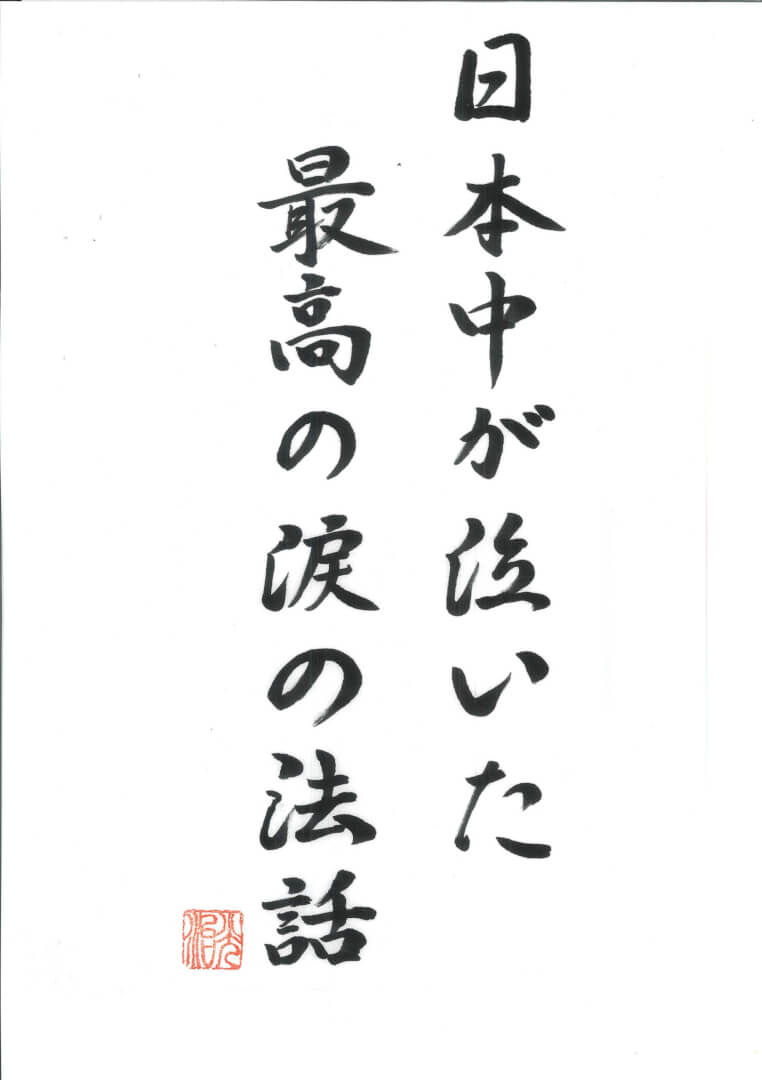 日本中が泣いた
最高の涙の法話